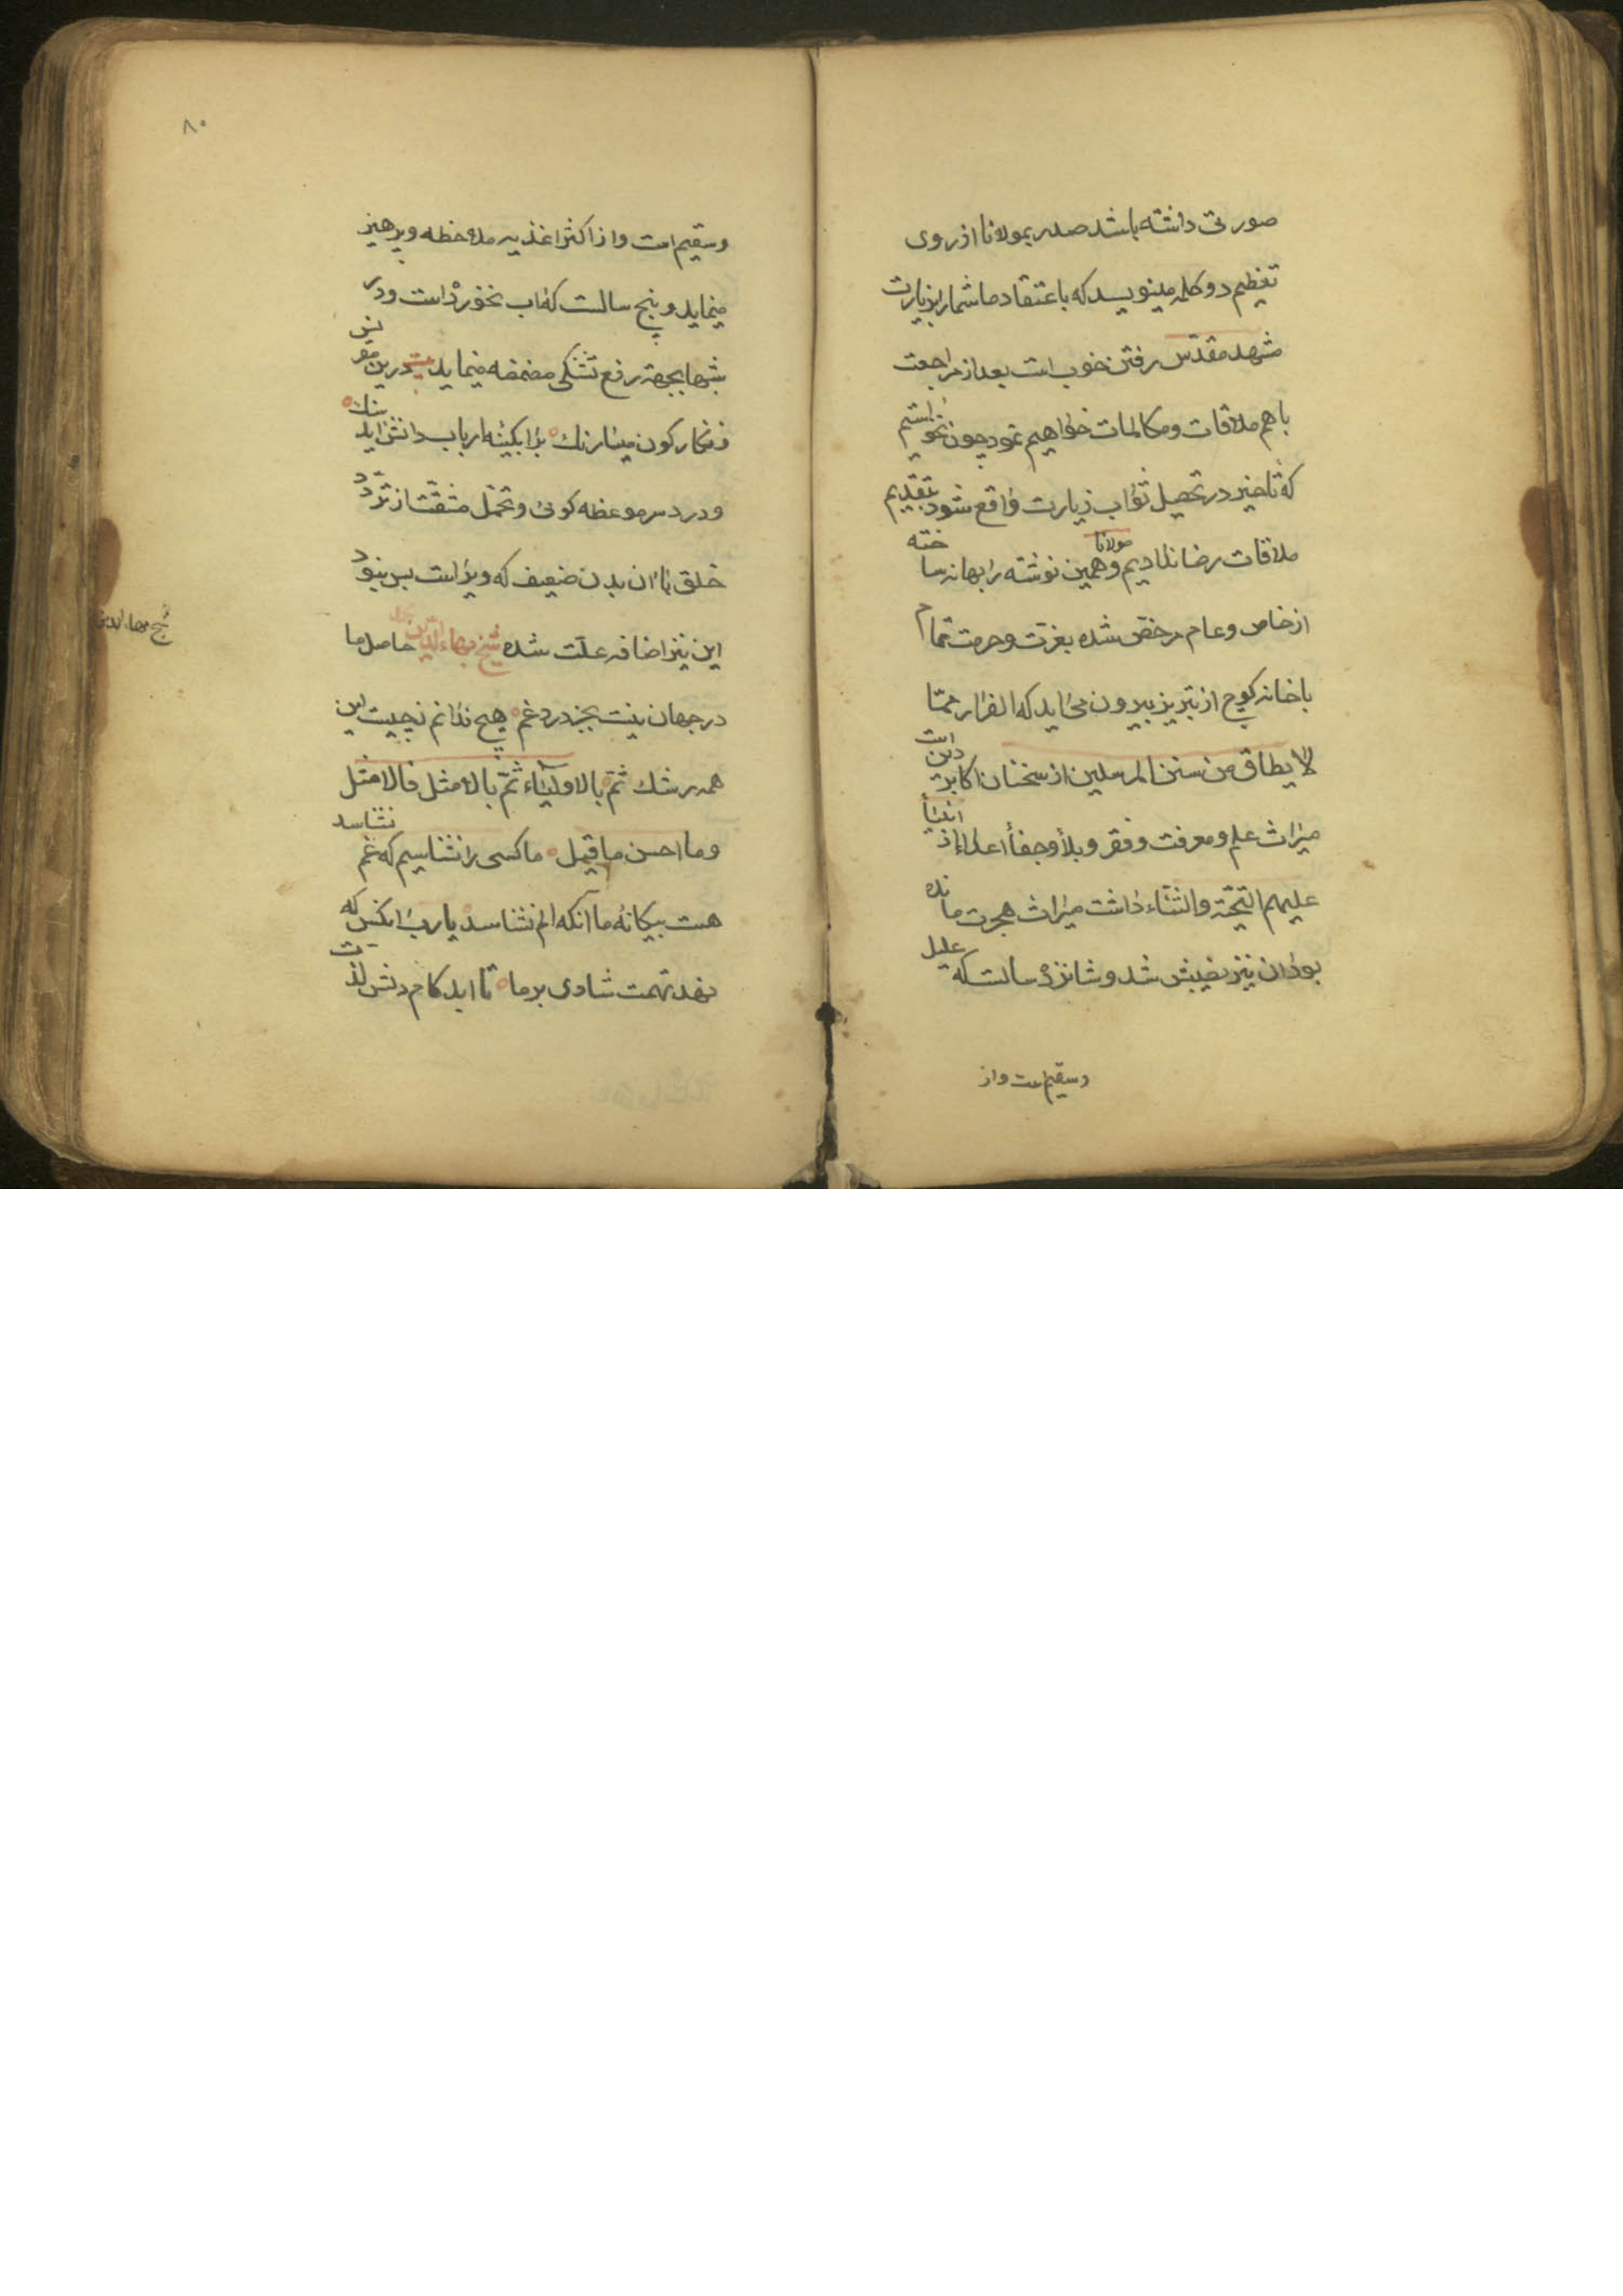 صورتی داشته باشد صدر بمولانا از روی
تعظیم دو کلمه مینویسد که باعتقاد ما شما را بزیارت
مشهد مقدّس رفتن خوب است بعد از مراجعت
با هم ملاقات و مکالمات خواهیم نمود چون نخواستیم
که تاخیر در تحصیل ثواب زیارت واقع شود بتقدیم
ملاقات رضا ندادیم و مولانا همین نوشته را بهانه ساخته
از خاص و عام مرخص شده بعزت و حرمت تمام
با خانه کوچ از تبریز بیرون می اید که الفرار ممّا
لا یطاق من سنن المرسلین از سخنان اکابر دین است
میراث علم و معرفت و فقر و بلا و جفا اعداء از انبیا
علیهم التحیّة و الثناء داشت میراث هجرت مانده
بود ان نیز نصیبش شد و شانزده سالست که علیل
و سقیم است و از
۸۰
و سقیم است و از اکثر اغذیه ملاحظه و پرهیز
مینماید و پنج سالست که اب نخورده است و در
شبها بجهة رفع تشنکی مضمضه مینماید بیت درین مقرنس
زنکارکون مینا رنك بر ابکینه ارباب دانش اید سنك
و درد سر موعظه کوئی و تحمّل مشقّت از تردّد
خلق با ان بدن ضعیف که ویراست بس نبود
این نیز اضافه علّت شده شیخ بهاء الدّین محمد حاصل ما
شیخ بهاء الدین
در جهان نیست بجز درد و غم هیچ ندانم ز چیست این
همه رشك ثمّ بالاولیاء ثمّ بالامثل فالامثل
و ما احسن ما قیل ما کسی را نشناسیم که غم نشناسد
هست بیکانهٔ ما آنکه الم نشناسد یا رب انکس که
نهد تهمت شادی بر ما تا ابد کام دلش لذّت